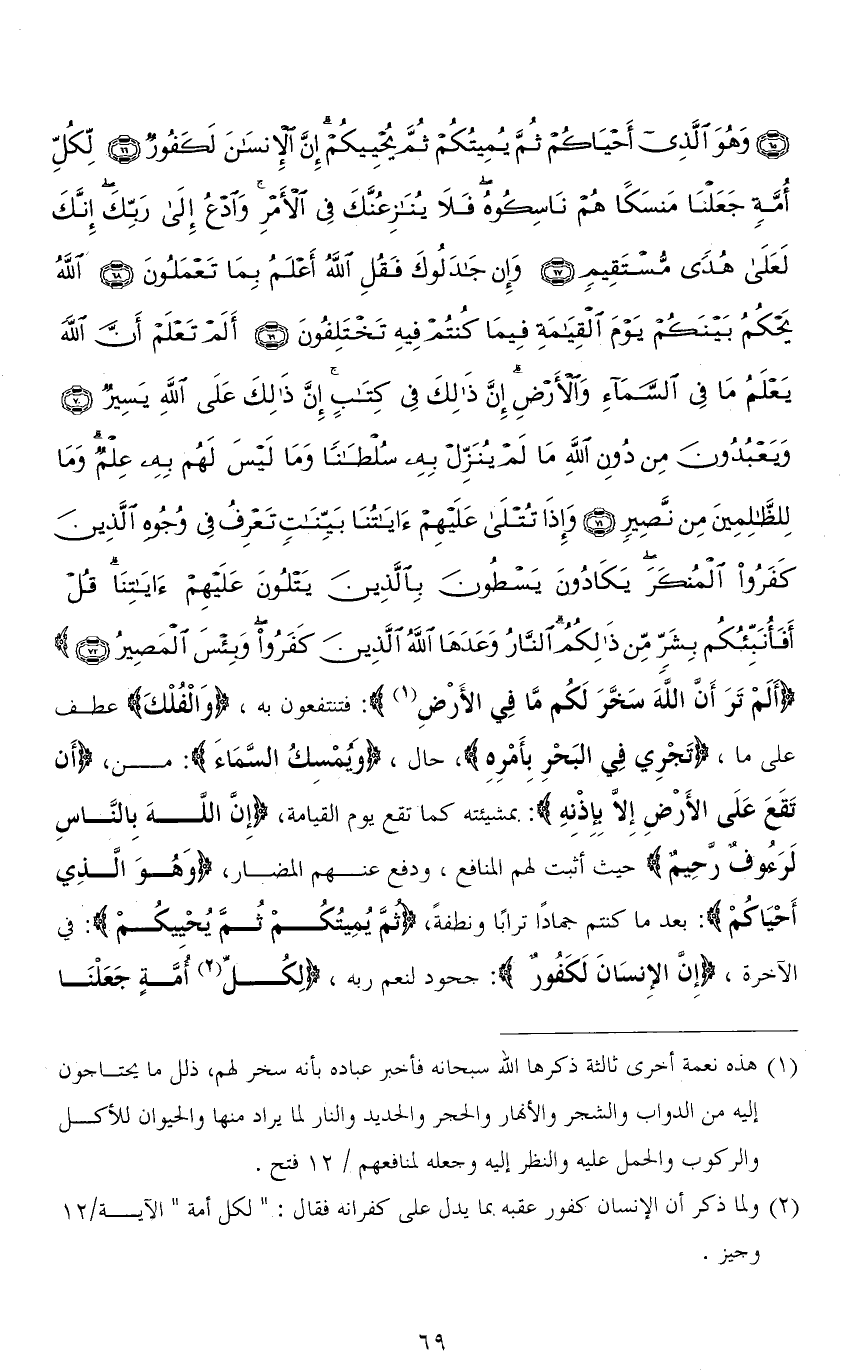 ﴿٦٥﴾ وَهُوَ ٱلَّذِىٓ أَحْيَاكُمْ ثُمَّ يُمِيتُكُمْ ثُمَّ يُحْيِيكُمْ ۗ إِنَّ ٱلْإِنسَٰنَ لَكَفُورٌ ﴿٦٦﴾ لِّكُلِّ
أُمَّةٍ جَعَلْنَا مَنسَكًا هُمْ نَاسِكُوهُ ۖ فَلَا يُنَٰزِعُنَّكَ فِى ٱلْأَمْرِ ۚ وَٱدْعُ إِلَىٰ رَبِّكَ ۖ إِنَّكَ
لَعَلَىٰ هُدًى مُّسْتَقِيمٍ ﴿٦٧﴾ وَإِن جَٰدَلُوكَ فَقُلِ ٱللَّهُ أَعْلَمُ بِمَا تَعْمَلُونَ ﴿٦٨﴾ ٱللَّهُ
يَحْكُمُ بَيْنَكُمْ يَوْمَ ٱلْقِيَٰمَةِ فِيمَا كُنتُمْ فِيهِ تَخْتَلِفُونَ ﴿٦٩﴾ أَلَمْ تَعْلَمْ أَنَّ ٱللَّهَ
يَعْلَمُ مَا فِى ٱلسَّمَآءِ وَٱلْأَرْضِ ۗ إِنَّ ذَٰلِكَ فِى كِتَٰبٍ ۚ إِنَّ ذَٰلِكَ عَلَى ٱللَّهِ يَسِيرٌ ﴿٧٠﴾
وَيَعْبُدُونَ مِن دُونِ ٱللَّهِ مَا لَمْ يُنَزِّلْ بِهِۦ سُلْطَٰنًا وَمَا لَيْسَ لَهُم بِهِۦ عِلْمٌ ۗ وَمَا
لِلظَّٰلِمِينَ مِن نَّصِيرٍ ﴿٧١﴾ وَإِذَا تُتْلَىٰ عَلَيْهِمْ ءَايَٰتُنَا بَيِّنَٰتٍ تَعْرِفُ فِى وُجُوهِ ٱلَّذِينَ
كَفَرُوا۟ ٱلْمُنكَرَ ۖ يَكَادُونَ يَسْطُونَ بِٱلَّذِينَ يَتْلُونَ عَلَيْهِمْ ءَايَٰتِنَا ۗ قُلْ
أَفَأُنَبِّئُكُم بِشَرٍّ مِّن ذَٰلِكُمُ ۗ ٱلنَّارُ وَعَدَهَا ٱللَّهُ ٱلَّذِينَ كَفَرُوا۟ ۖ وَبِئْسَ ٱلْمَصِيرُ ﴿٧٢﴾ ﴾
﴿أَلَمْ تَرَ أَنَّ اللَّهَ سَخَّرَ لَكُم مَّا فِي الأَرْضِ(١) ﴾: فتنتفعون به ، ﴿وَالْفُلْكَ﴾ عطف
على ما ، ﴿تَجْرِي فِي البَحْرِ بِأَمْرِهِ ﴾، حال ، ﴿وَيُمْسِكُ السَّمَاءَ ﴾: مــن، ﴿أَن
تَقَعَ عَلَى الأَرْضِ إِلاَّ بِإِذْنِهِ ﴾: بمشيئته كما تقع يوم القيامة، ﴿إِنَّ اللَّهَ بِالنَّاسِ
لَرَءُوفٌ رَّحِيمٌ ﴾ حيث أثبت لهم المنافع ، ودفع عنهم المضار، ﴿وَهُوَ الَّذِي
أَحْيَاكُمْ ﴾: بعد ما كنتم جمادًا ترابًا ونطفةً، ﴿ثُمَّ يُمِيتُكُمْ ثُمَّ يُحْيِيكُمْ ﴾: في
الآخرة ، ﴿إِنَّ الإِنسَانَ لَكَفُورٌ ﴾: جحود لنعم ربه ، ﴿لِكُلِّ(٢) أُمَّةٍ جَعَلْنَا
(١) هذه نعمة أخرى ثالثة ذكرها الله سبحانه فأخبر عباده بأنه سخر لهم، ذلل ما يحتاجون
إليه من الدواب والشجر والأنهار والحجر والحديد والنار لما يراد منها والحيوان للأكل
والركوب والحمل عليه والنظر إليه وجعله لمنافعهم / ١٢ فتح .
(٢) ولما ذكر أن الإنسان كفور عقبه بما يدل على كفرانه فقال : " لكل أمة " الآية/١٢
وجيز .
٦٩